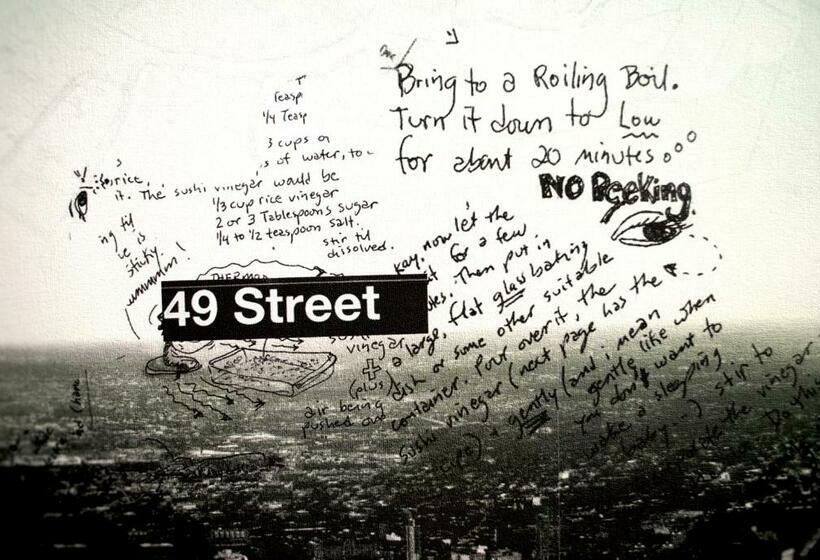 Bring to a Roiling Boil.
Turn it down to Low
for about 20 minutes
NO Peeking.
Teasp
1/4 Teasp
3 cups
s of water, to
rice,
it. The sushi vinegar would be
1/3 cup rice vinegar
2 or 3 Tablespoons sugar
1/4 to 1/2 teaspoon salt.
stir til
dissolved.
ing til
is
sticky
49 Street
vinegar
(plus)
air being
pushed out
kay, now let the
for a few
Then put in
a large, flat glass baking
dish or some other suitable
container. Pour over it, the
sushi vinegar (next page has the
gently (and i mean
gentle like when
you don't want to
wake a sleeping
stir to
the vinegar